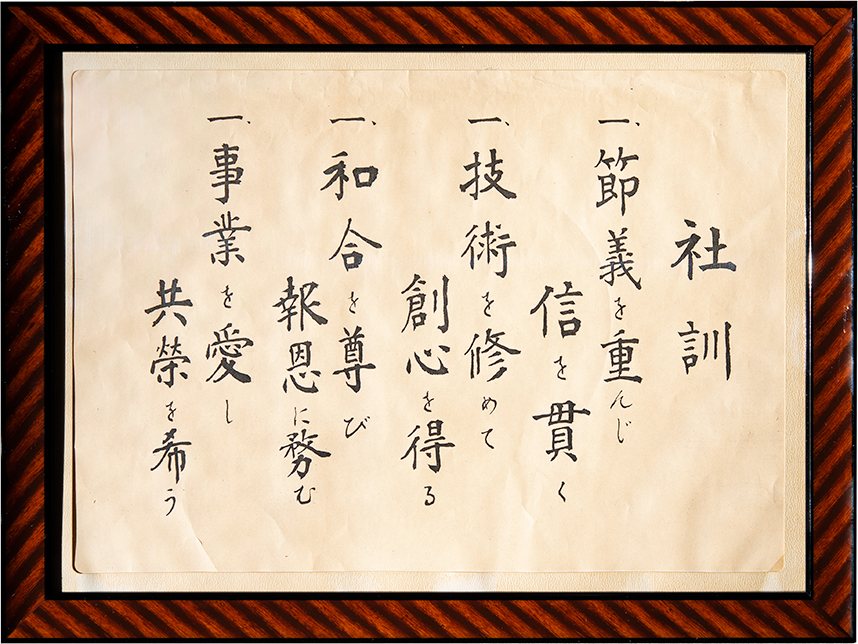 社訓
一、節義を重んじ
信を貫く
一、技術を修めて
創心を得る
一、和合を尊び
報恩に務む
一、事業を愛し
共榮を希う